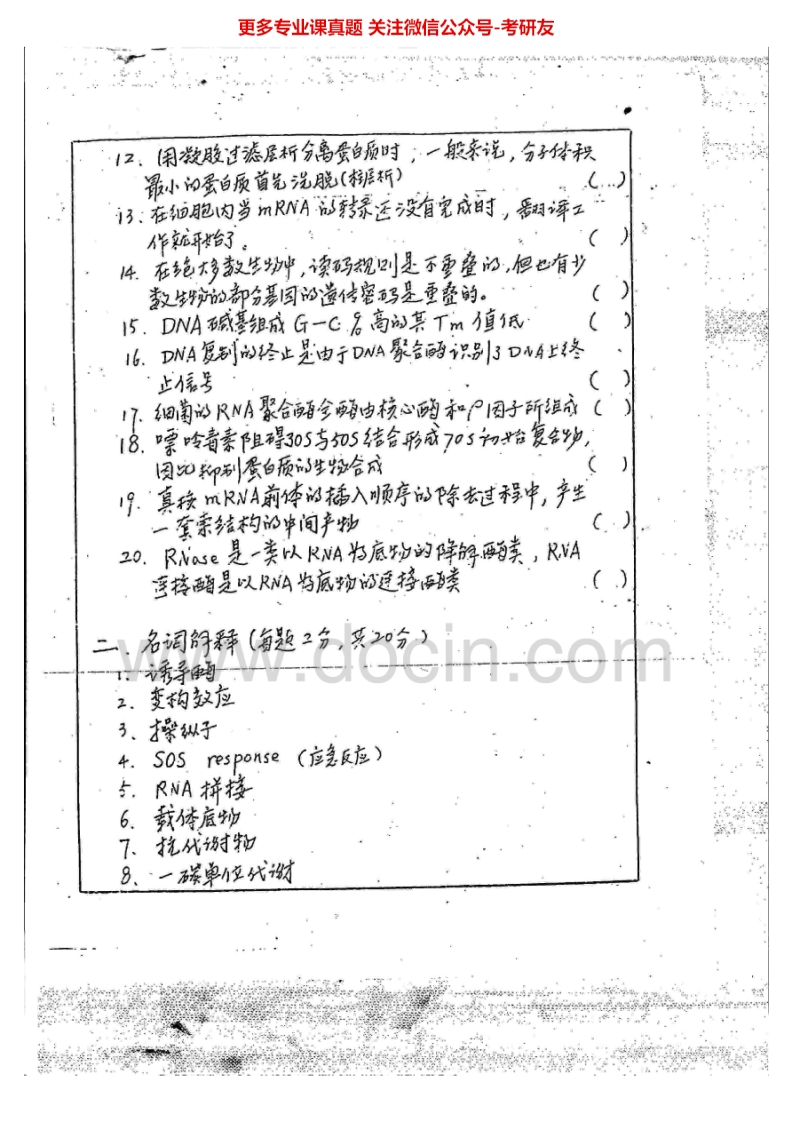 更多专业课真题 关注微信公众号-考研友
12. 用凝胶过滤层析分离蛋白质时，一般来说，分子体积
最小的蛋白质首先洗脱(柱层析) ( )
13. 在细胞内当mRNA的转录还没有完成时，翻译工
作就开始了。 ( )
14. 在绝大多数生物中，读码规则是不重叠的，但也有少
数生物的部分基因的遗传密码是重叠的。 ( )
15. DNA碱基组成 G-C %高的其Tm值低 ( )
16. DNA复制的终止是由于DNA聚合酶识别了DNA上终
止信号 ( )
17. 细菌的RNA聚合酶全酶由核心酶和ρ因子所组成 ( )
18. 嘌呤毒素阻碍30S与50S结合形成70S初始复合物，
因此抑制蛋白质的生物合成 ( )
19. 真核mRNA前体的插入顺序的除去过程中，产生
一套索结构的中间产物 ( )
20. RNase是一类以RNA为底物的降解酶类，RNA
连接酶是以RNA为底物的连接酶类 ( )
二、名词解释(每题2分，共20分)
www.docin.com
1. 诱导酶
2. 变构效应
3. 操纵子
4. SOS response (应急反应)
5. RNA拼接
6. 载体底物
7. 抗代谢物
8. 一碳单位代谢